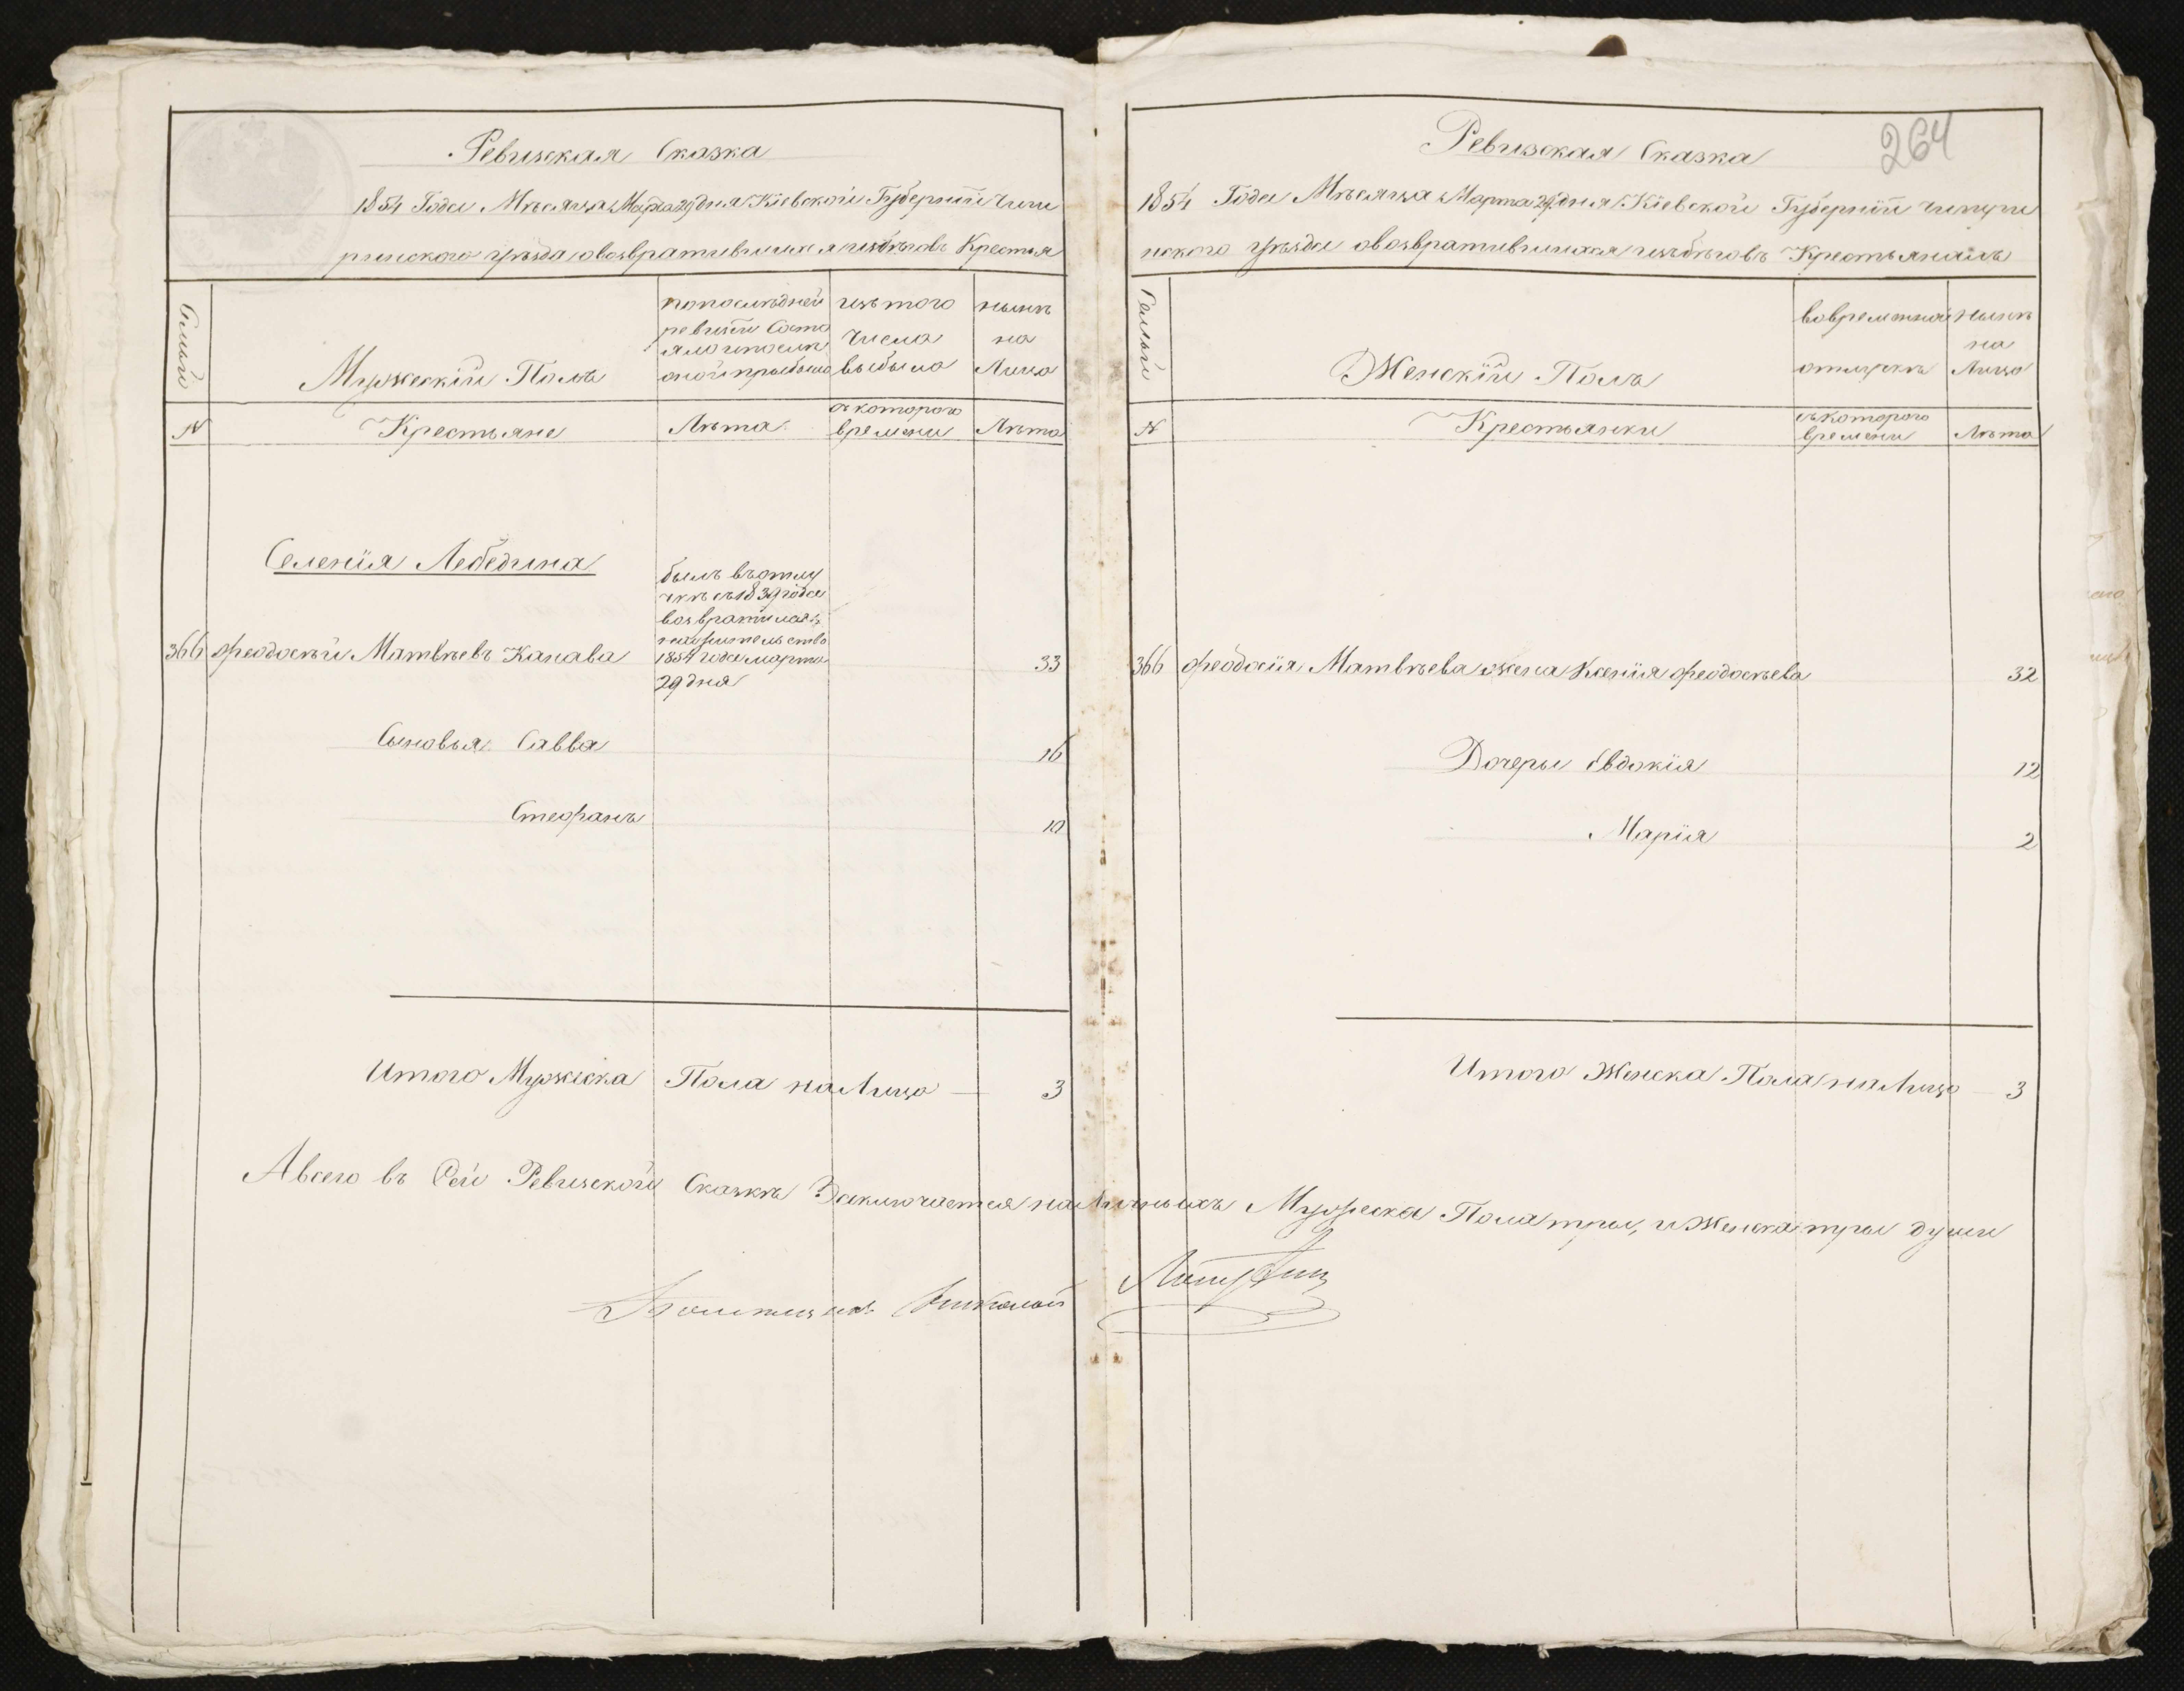 Ревизская Сказка
1854 Года Мѣсяца Марта 29 дня Кіевской Губерніи Чиги
ринскаго уѣзда о возвратившихся изъ бѣговъ Крестья
Семьи
Мужескій Полъ
по последней
ревизіи состо
яло и после
оной прыбыло
изъ того
числа
выбыло
ныне
на
Лицо
№
Крестьяне
Лѣта
съ которого
времени
Лѣта
Селенія Лебедина
366
Феодосій Матвѣевъ Канава
былъ въ отлу
чкѣ съ 1839 года
возвратился
на жительство
1854 года марта
29 дня
33
Сыновья Савва
16
Стефанъ
10
Итого Мужеска Пола на Лицо — 3
264
Ревизская Сказка
1854 Года Мѣсяца Марта 29 дня Кіевской Губерніи Чигири
нского уѣзда о возвратившихся изъ бѣговъ Крестьянахъ
Семьи
Женскій Полъ
во временной
отлучкѣ
нынѣ
на
Лицо
№
Крестьянки
съ которого
времени
Лѣта
366
Феодосія Матвѣева жена Ксенія Феодосѣева
32
Дочеры Евдокія
12
Марія
2
Итого Женска Пола на Лицо — 3
А всего въ Сей Ревизской Сказкѣ Заключается наличныхъ Мужеска Пола тры, и Женска тры души
Николай